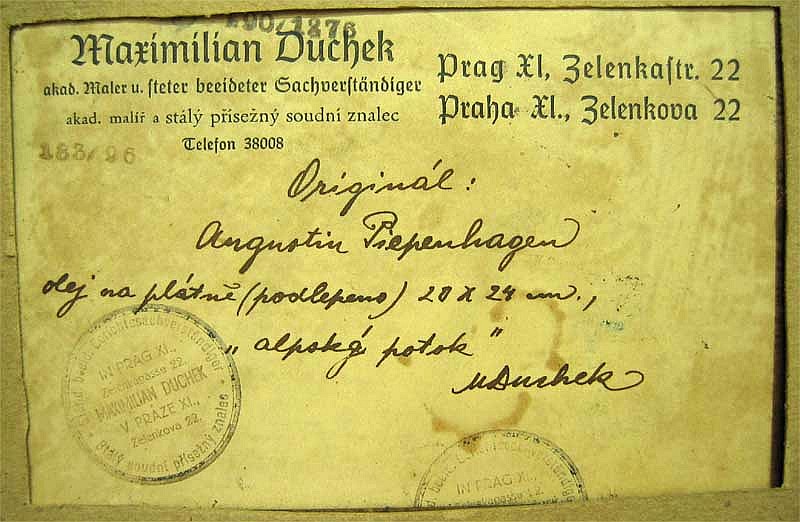 200/1276
Maximilian Duchek
akad. Maler u. steter beeideter Sachverständiger
akad. malíř a stálý přísežný soudní znalec
Telefon 38008
Prag XI, Zelenkastr. 22
Praha XI., Zelenkova 22
183/96
Originál:
Augustin Piepenhagen
olej na plátně (podlepeno) 20 x 24 cm.,
„alpský potok"
MDuchek
IN PRAG XI.,
Zelenkagasse 22.
MAXIMILIAN DUCHEK
V PRAZE XI.,
Zelenkova 22.
stálý soudní přísežný znalec
IN PRAG XI.,
Zelenkagasse 22.